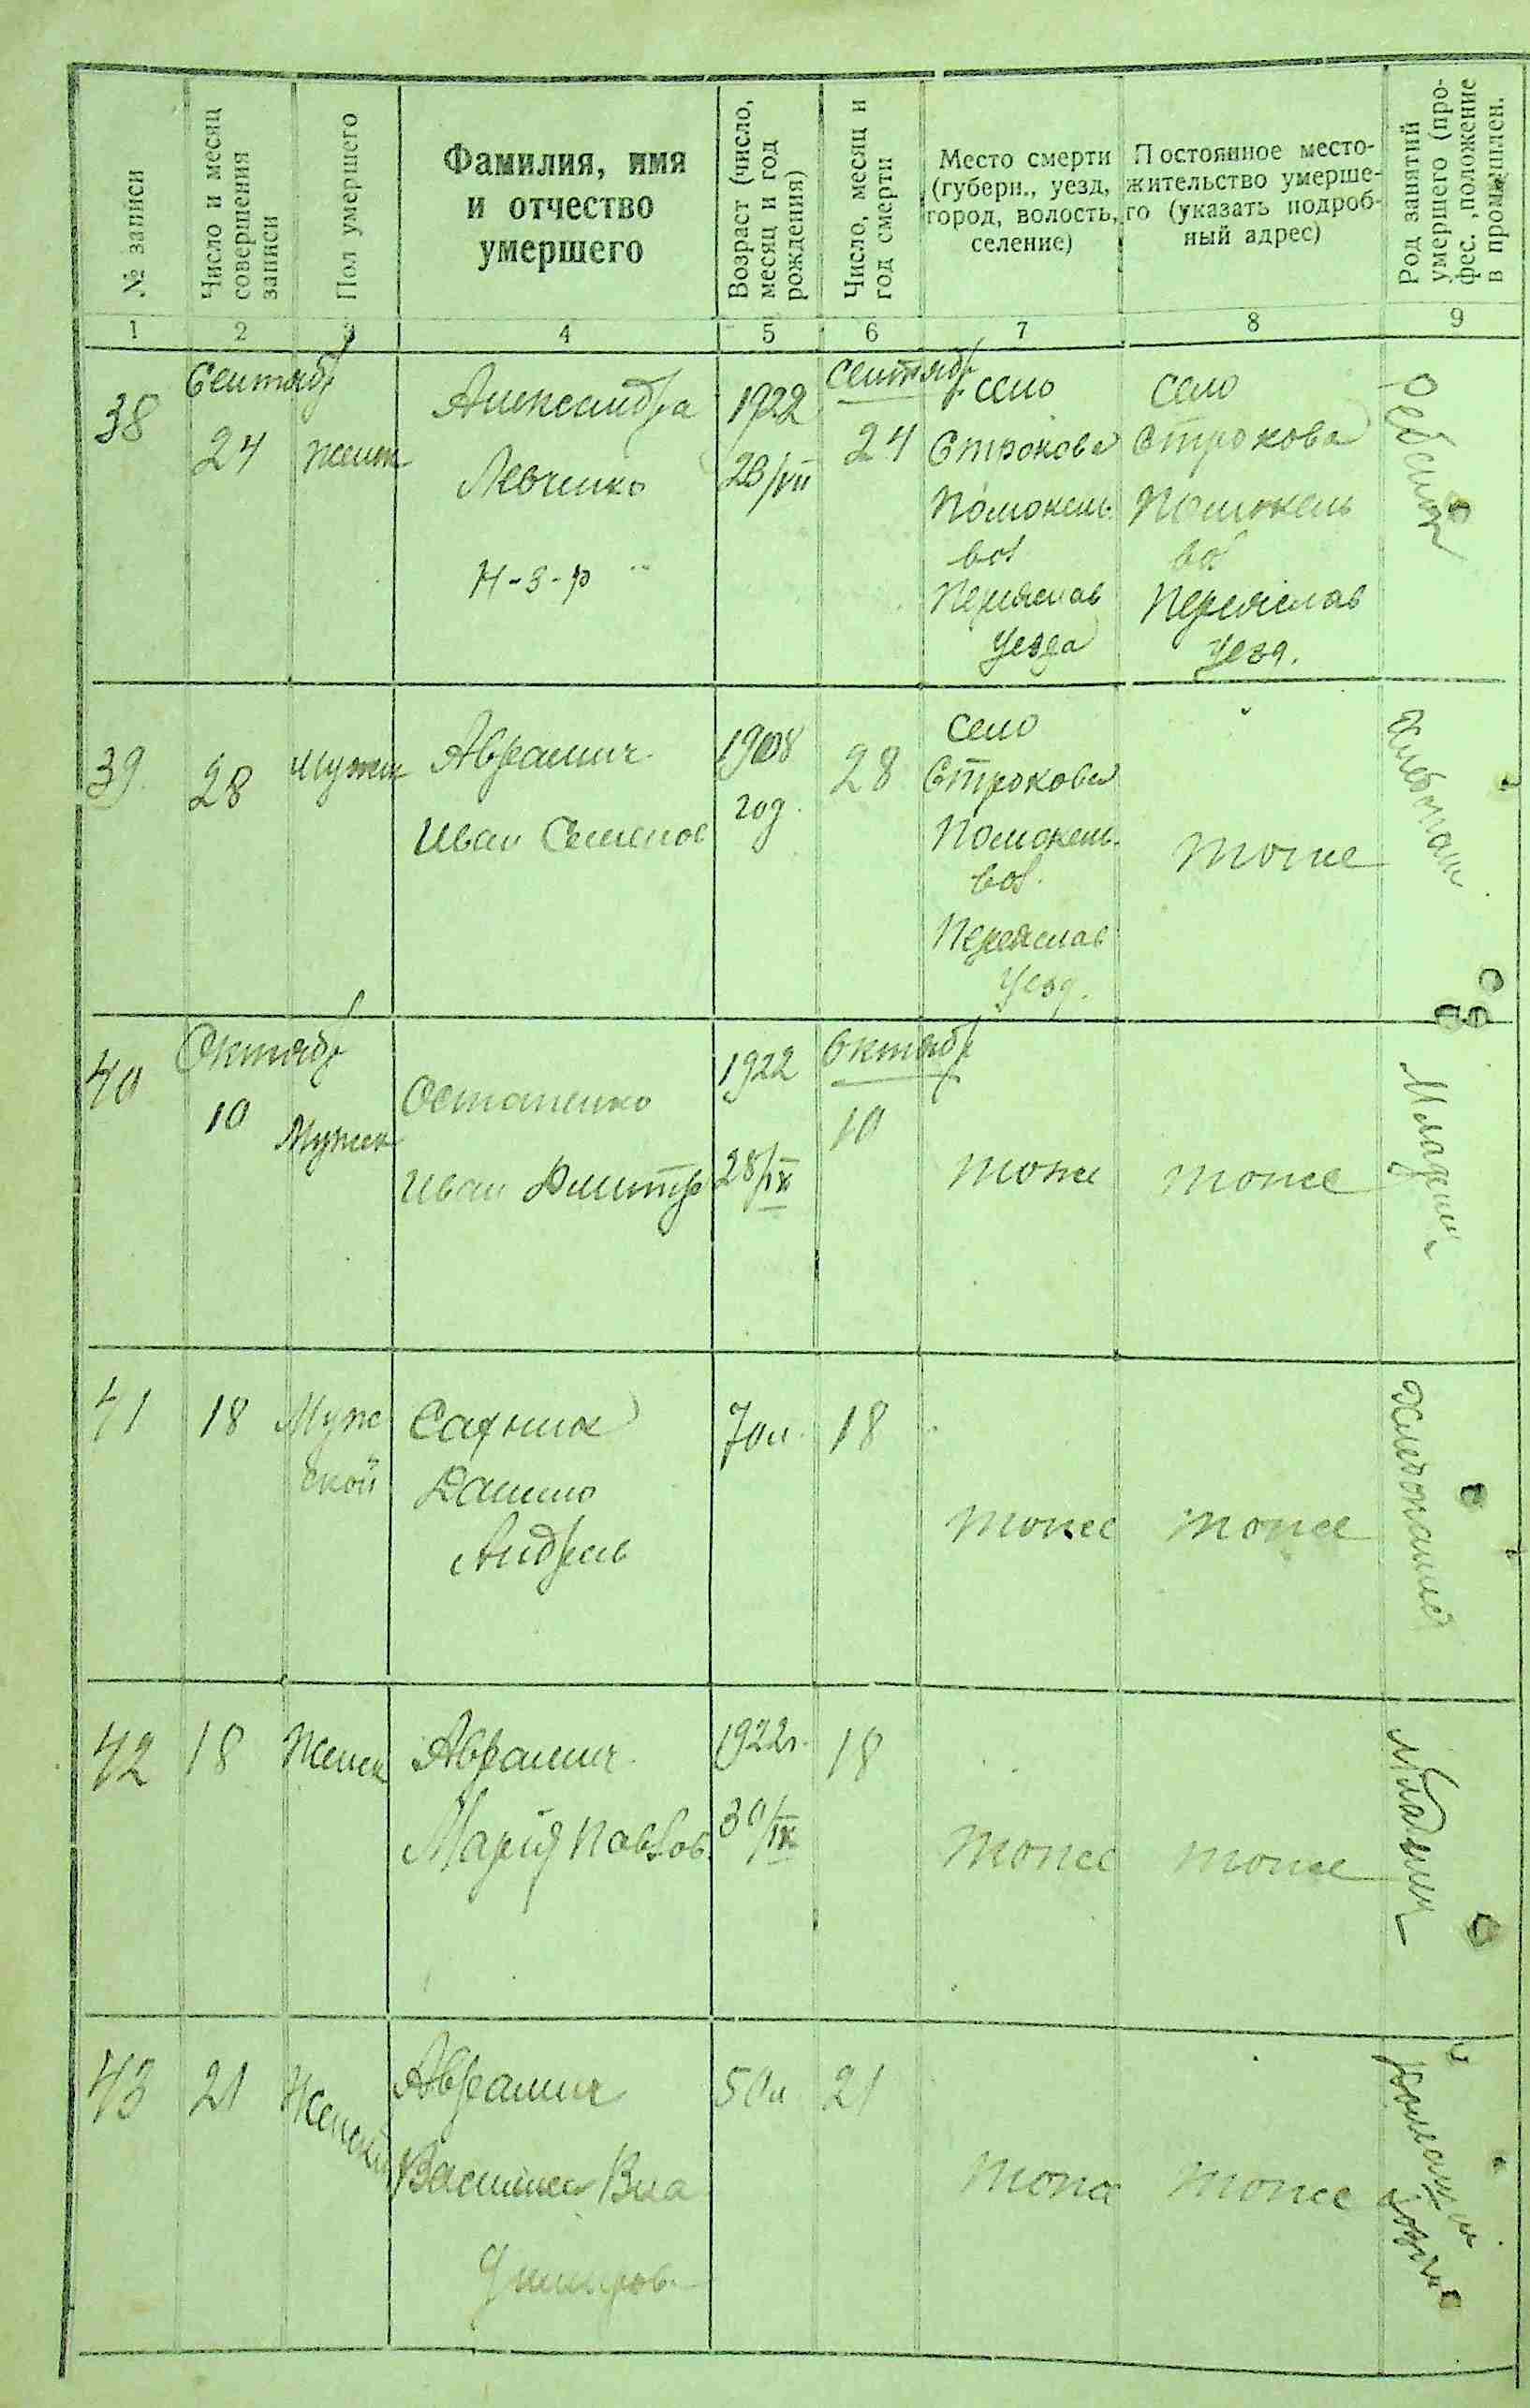 № записи
Число и месяц
совершения
записи
Пол умершего
Фамилия, имя
и отчество
умершего
Возраст (число,
месяц и год
рождения)
Число, месяц и
год смерти
Место смерти
(губерн., уезд,
город, волость,
селение)
Постоянное место-
жительство умерше-
го (указать подроб-
ный адрес)
Род занятий
умершего (про-
фес., положение
в промышлен.
1 2 3 4 5 6 7 8 9
38
Сентябр
24
женск
Александра
Левченко
Н-з-р
1922
28/VII
Сентябр
24
село
Строкова
Помокель.
вол
Переяслав
Уезда
село
Строкова
Помокель
вол
Переяслав
Уезд.
39
28
Мужск
Аврамич
Иван Семенов
1908
год.
28
село
Строкова
Помокель.
вол.
Переяслав
Уезд.
тоже
40
Октябр
10
Мужск
Остапенко
Иван Дмитр
1922
28/IX
Октябр
10
тоже
тоже
Младен
41
18
Муж
ской
Данило
Андреев
70 л.
18
тоже
тоже
42
18
Женск
Аврамич
Марія Павлов
1922г.
30/IX
18
тоже
тоже
Младенц
43
21
Женский
Аврамич
50 л
21
тоже
тоже